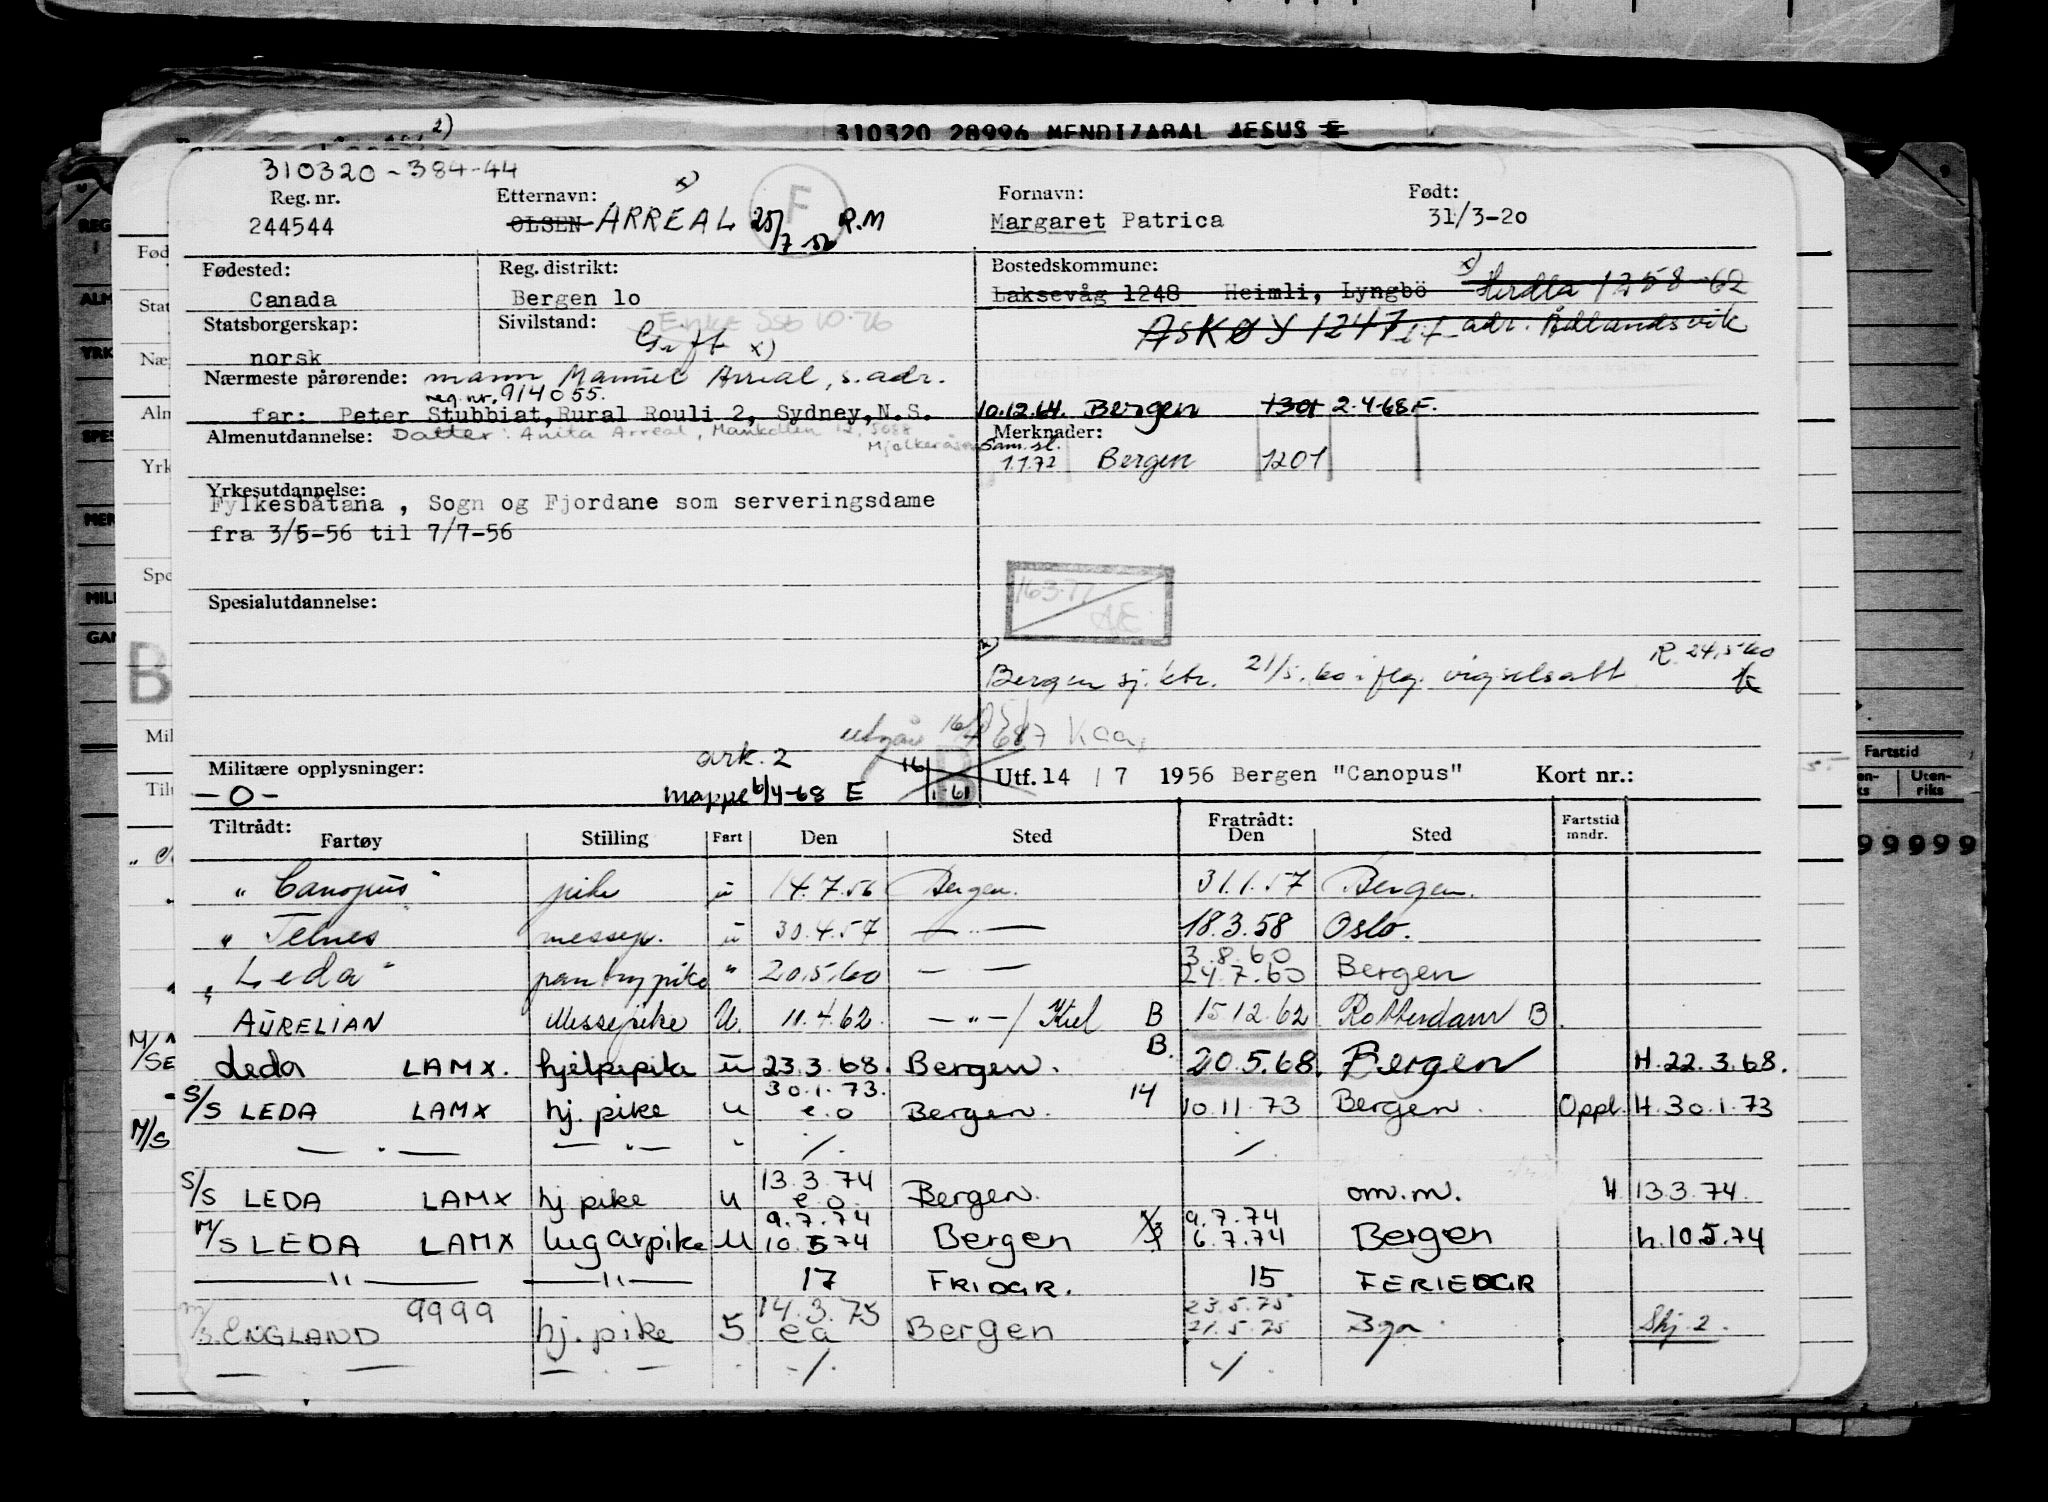 310320 28996 MENDIZABAL JESUS E
2)
310320-384-44
Reg. nr. Etternavn: x) F Fornavn: Født:
244544 OLSEN ARREAL 25/7 R.M Margaret Patrica 31/3-20
Fødested: Reg. distrikt: Bostedskommune: x)
Canada Bergen lo Laksevåg 1248 Heimli, Lyngbö Herdla 1258-62
Statsborgerskap: Sivilstand: Enke SSB 10-76 ASKØY 1247 adr. Ådlandsvik
norsk Gift x)
Nærmeste pårørende: mann Manuel Arreal, s. adr.
reg. nr. 914055.
far: Peter Stubbiat, Rural Rouli 2, Sydney, N.S. 10.12.64. Bergen 1301 2.4.68 E.
Almenutdannelse: Datter: Anita Arreal, 5088 Merknader:
Sam. sl.
1.1.72 Bergen 1201
Yrkesutdannelse:
Fylkesbåtana, Sogn og Fjordane som serveringsdame
fra 3/5-56 til 7/7-56
163.77
AE
Spesialutdannelse:
x)
Bergen sj. ktr. 21/5.60 i flg. vigselsatt R. 24.5.60
utgår 16/
ark. 2
Militære opplysninger: 16/1 61 B Utf. 14 / 7 1956 Bergen "Canopus" Kort nr.:
-0- mappe 6/4-68 E
Tiltrådt: Fratrådt: Fartstid
Fartøy Stilling Fart Den Sted Den Sted mndr.
"Canopus" pike u 14.7.56 Bergen. 31.1.57 Bergen.
" Telnes" messep. u 30.4.57 — " — 18.3.58 Oslo.
3.8.60
"Leda" pantrypike " 20.5.60 — — 24.7.60 Bergen
AURELIAN Messepike U 11.4.62. — " — / Kiel B 15.12.62 Rotterdam B
Leda LAMX. hjelpepike u 23.3.68. Bergen. B. 20.5.68. Bergen H. 22.3.68.
30.1.73.
S/S LEDA LAMX hj. pike u e.o Bergen. 14 10.11.73 Bergen. Oppl. H. 30.1.73
— " — — " — " ·/. ·/.
13.3.74
S/S LEDA LAMX hj pike u e.o. Bergen. om.m. H 13.3.74.
9.7.74 9.7.74
M/S LEDA LAMX lugarpike U 10.5 74 Bergen 6.7.74 Bergen h. 10.5.74
— " — — " — 17 FRIDGR. 15 FERIEDGR
14.3.75 23.5.75
M/S ENGLAND 9999 hj. pike 5 ea Bergen 21.5.75 Bgn. Skj. 2.
— — — · — · ·/. ·/.
REG
Fød
ALM
Stat
YRK
Næ
Alm
SPES
Yrk
MEN
Spe
MILI
GAN
B
Mil
Tilt
M/
M/S
Fartstid
Uten-
riks
99999